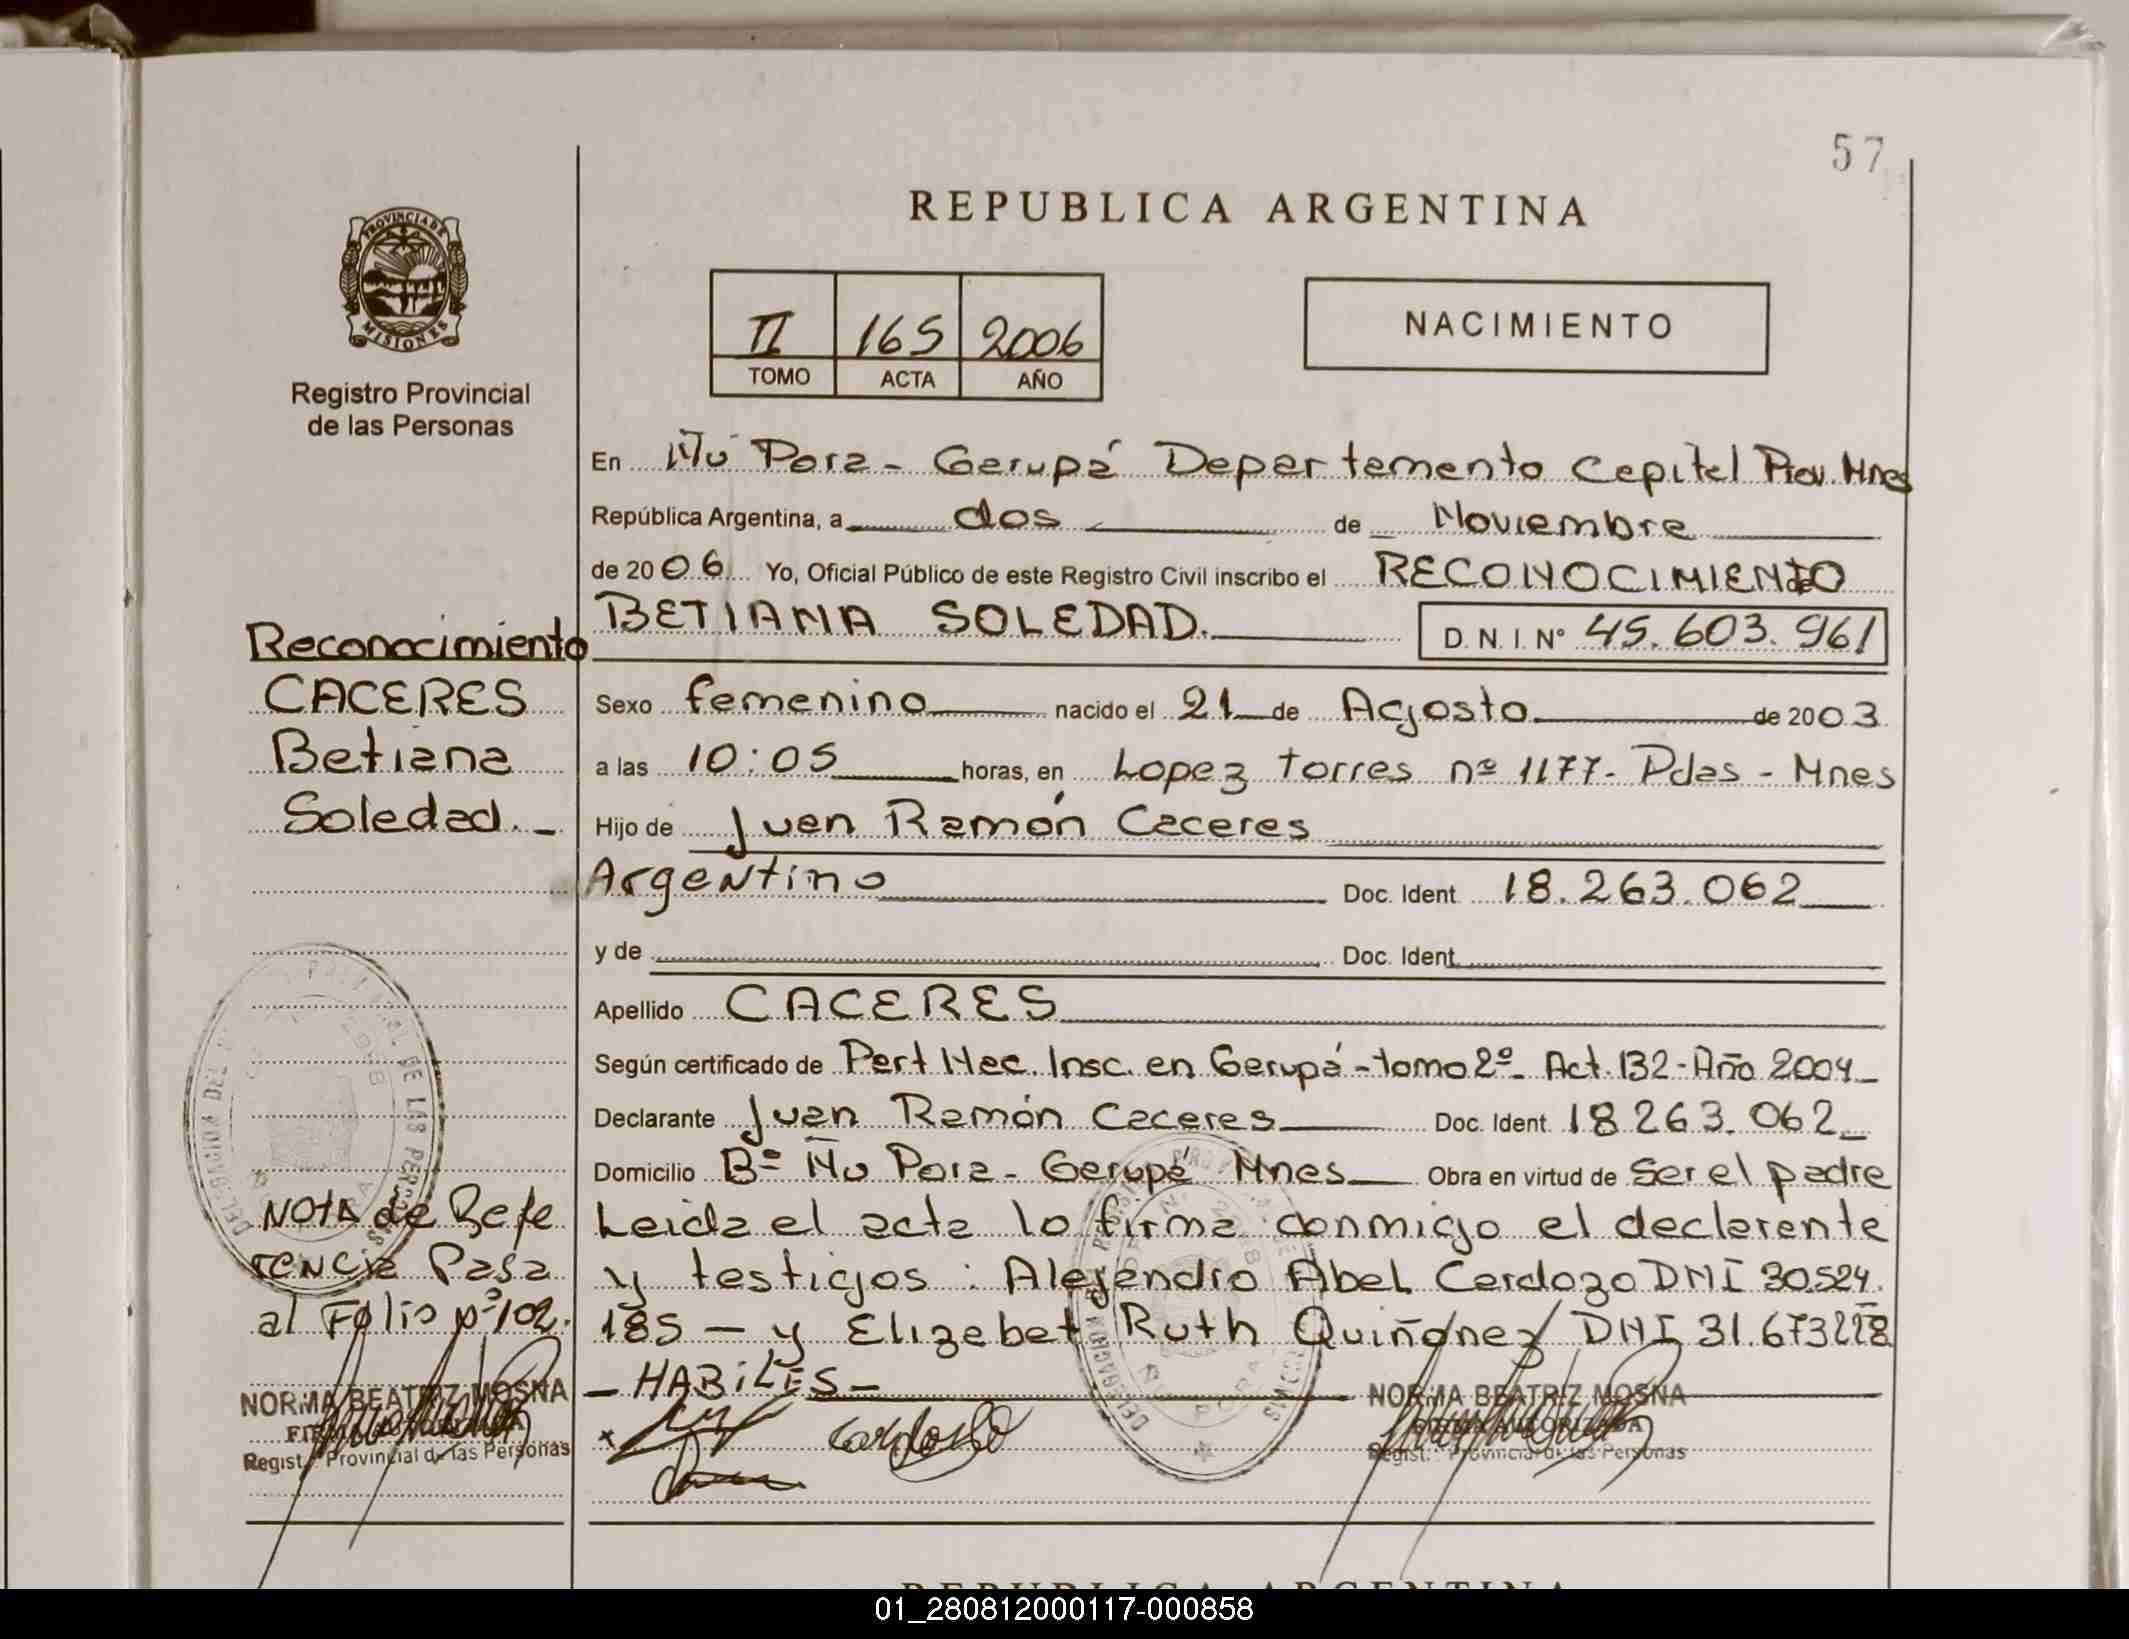 57
REPUBLICA ARGENTINA
PROVINCIA DE MISIONES
Registro Provincial
de las Personas
II 165 2006
TOMO ACTA AÑO
NACIMIENTO
En Ñu Pora - Garupá Departamento Capital Prov. Mnes
República Argentina, a dos de Noviembre
de 2006 Yo, Oficial Público de este Registro Civil inscribo el RECONOCIMIENTO
BETIANA SOLEDAD. D. N. I. Nº 45.603.961
Reconocimiento
CACERES
Betiana
Soledad. -
Sexo femenino nacido el 21 de Agosto de 2003
a las 10:05 horas, en Lopez torres nº 1177 - Pdas - Mnes
Hijo de Juan Ramón Caceres
Argentino Doc. Ident. 18.263.062
y de Doc. Ident.
Apellido CACERES
Según certificado de Part Nac. Insc. en Garupá - tomo 2º - Act. 132 - Año 2004 -
Declarante Juan Ramón Caceres Doc. Ident. 18.263.062 -
Domicilio Bº Ñu Pora - Garupá Mnes Obra en virtud de Ser el padre
Leida el acta lo firma conmigo el declarante
y testigos : Alejandro Abel Cardozo DNI 30.524.
185 - y Elizabet Ruth Quiñonez DNI 31.673228
- HABILES -
NOTA de Refe
rencia Pasa
al Folio nº 102.
NORMA BEATRIZ MOSNA
FIRMA AUTORIZADA
Regist. Provincial de las Personas
Cardozo
NORMA BEATRIZ MOSNA
FIRMA AUTORIZADA
Regist. Provincial de las Personas
REPUBLICA ARGENTINA
01_280812000117-000858